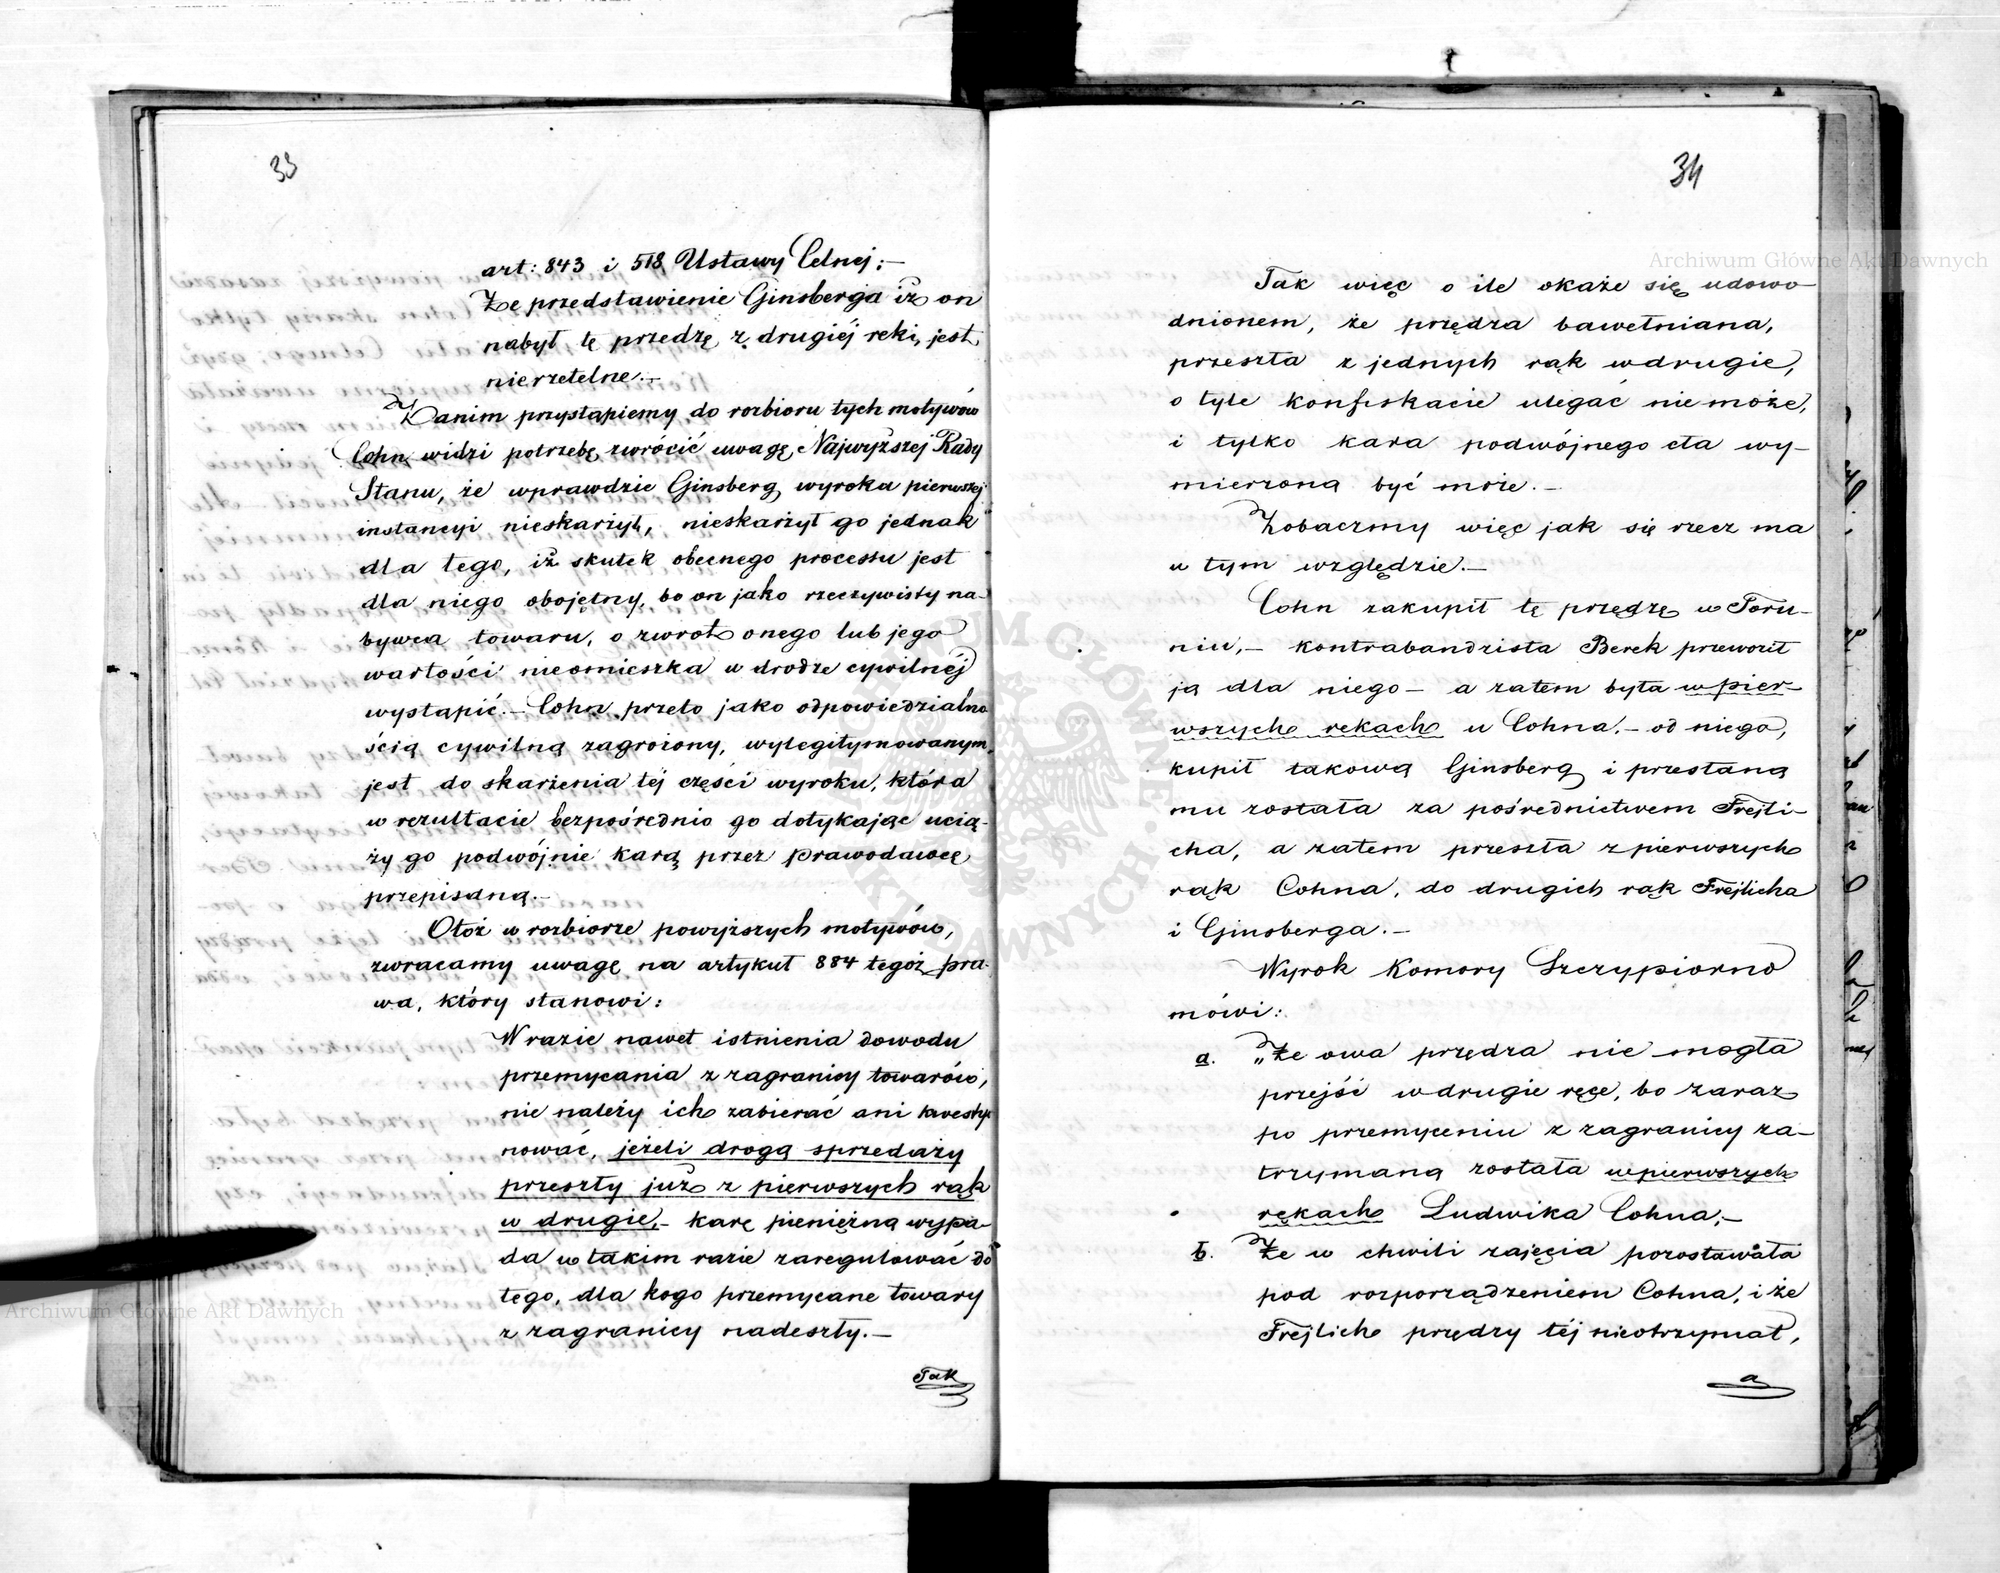 33
art: 843 i 518 Ustawy Celnej;—
Że przedstawienie Ginsberga iż on
nabył tę przedzę z drugiéj ręki, jest
nierzetelne.—
Zanim przystąpiemy do rozbioru tych motywów
Cohn widzi potrzebę zwrócić uwagę Najwyższej Rady
Stanu, że wprawdzie Ginsberg wyroku pierwszej
instancyi nieskarżył, nieskarżył go jednak
dla tego, iż skutek obecnego processu jest
dla niego obojętny, bo on jako rzeczywisty na-
bywca towaru, o zwrot onego lub jego
wartości nieomieszka w drodze cywilnéj
wystąpić.— Cohn przeto jako odpowiedzialno
ścią cywilną zagrożony, wylegitymowanym
jest do skarżenia téj części wyroku, która
w rezultacie bezpośrednio go dotykając ucią-
ży go podwójnie karą przez prawodawcę
przepisaną.—
Otóż w rozbiorze powyższych motywów,
zwracamy uwagę na artykuł 884 tegoż pra-
wa, który stanowi:
W razie nawet istnienia dowodu
przemycania z zagranicy towarów,
nie należy ich zabierać ani kwestyo
nować, jeżeli drogą sprzedaży
przeszły już z pierwszych rąk
w drugie,— karę pieniężną wypa-
da w takim razie zaregulować do
tego, dla kogo przemycane towary
z zagranicy nadeszły.—
Tak
34
Tak więc o ile okaże się udowo-
dnionem, że przędza bawełniana,
przeszła z jednych rąk w drugie,
o tyle konfiskacie ulegać nie może,
i tylko kara podwójnego cła wy-
mierzona być może.—
Zobaczmy więc jak się rzecz ma
w tym względzie.—
Cohn zakupił tę przędzę w Toru-
niu,— kontrabandzista Berek przewoził
ją dla niego — a zatem była w pier-
wszych rękach u Cohna.— od niego,
kupił takową Ginsberg i przesłaną
mu została za pośrednictwem Frejli-
cha, a zatem przeszła z pierwszych
rąk Cohna, do drugich rąk Frejlicha
i Ginsberga.—
Wyrok Komory Szczypiorno
mówi:
a. „Że owa przędza nie mogła
przejść w drugie ręce, bo zaraz
po przemyceniu z zagranicy za-
trzymaną została w pierwszych
rękach Ludwika Cohna,—
b. Że w chwili zajęcia pozostawała
pod rozporządzeniem Cohna, i że
Frejlich przędzy téj nieotrzymał,
a
Archiwum Główne Akt Dawnych
Archiwum Główne Akt Dawnych
ARCHIWUM GŁÓWNE AKT DAWNYCH